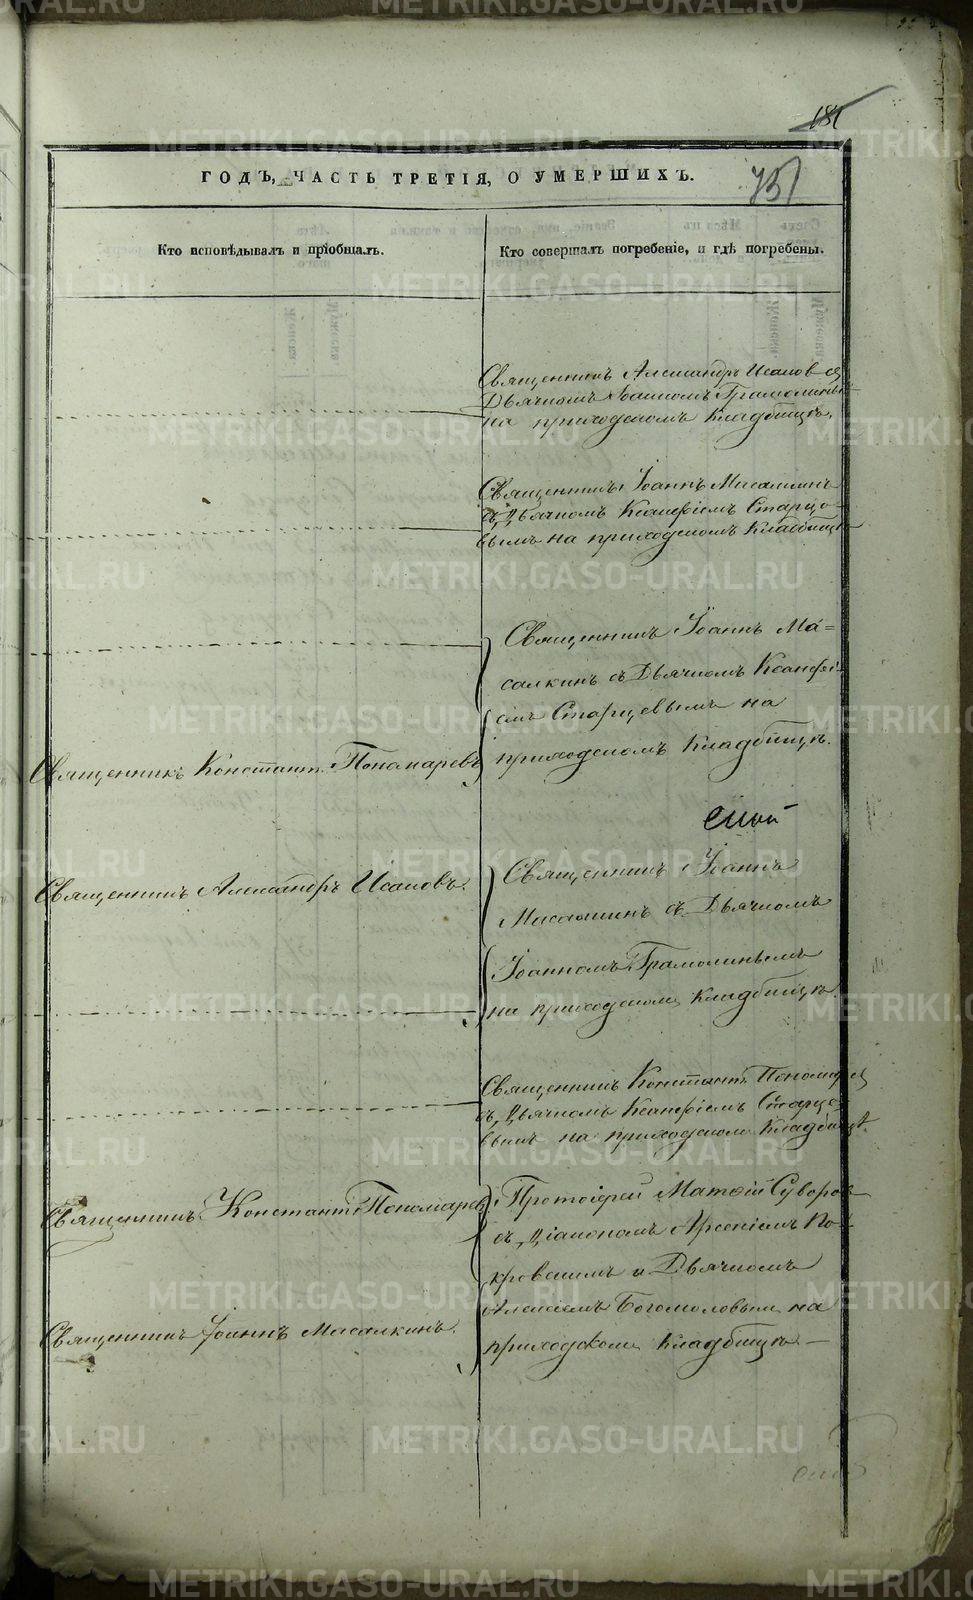 181
ГОДЪ, ЧАСТЬ ТРЕТІЯ, О УМЕРШИХЪ.
751
Кто исповѣдывалъ и пріобщалъ.
Кто совершалъ погребеніе, и гдѣ погребены.
Священникъ Александръ Исаковъ съ
Дьячкомъ Іоанномъ
на приходскомъ кладбищѣ.
Священникъ Іоаннъ Масалкинъ
съ Дьячкомъ Ксанфіемъ Старцо-
вымъ на приходскомъ кладбищѣ
Священникъ Іоаннъ Ма-
салкинъ съ Дьячкомъ Ксанфі-
емъ Старцевымъ на
приходскомъ кладбищѣ.
Священникъ Констант. Пономаревъ
Священникъ Александръ Исаковъ.
Священникъ Іоаннъ
Масалкинъ съ Дьячкомъ
Іоанномъ
на приходскомъ кладбищѣ.
Священникъ Констант. Пономарев
съ Дьячкомъ Ксанфіемъ Старцо-
вымъ на приходскомъ кладбищѣ.
Священникъ Констант. Пономаревъ
Протоіерей Матѳій Суворов
съ Діакономъ Арсеніемъ По-
кровскимъ и Дьячкомъ
Алексіемъ Богомоловымъ на
приходскомъ кладбищѣ.
Священникъ Іоаннъ Масалкинъ.
METRIKI.GASO-URAL.RU